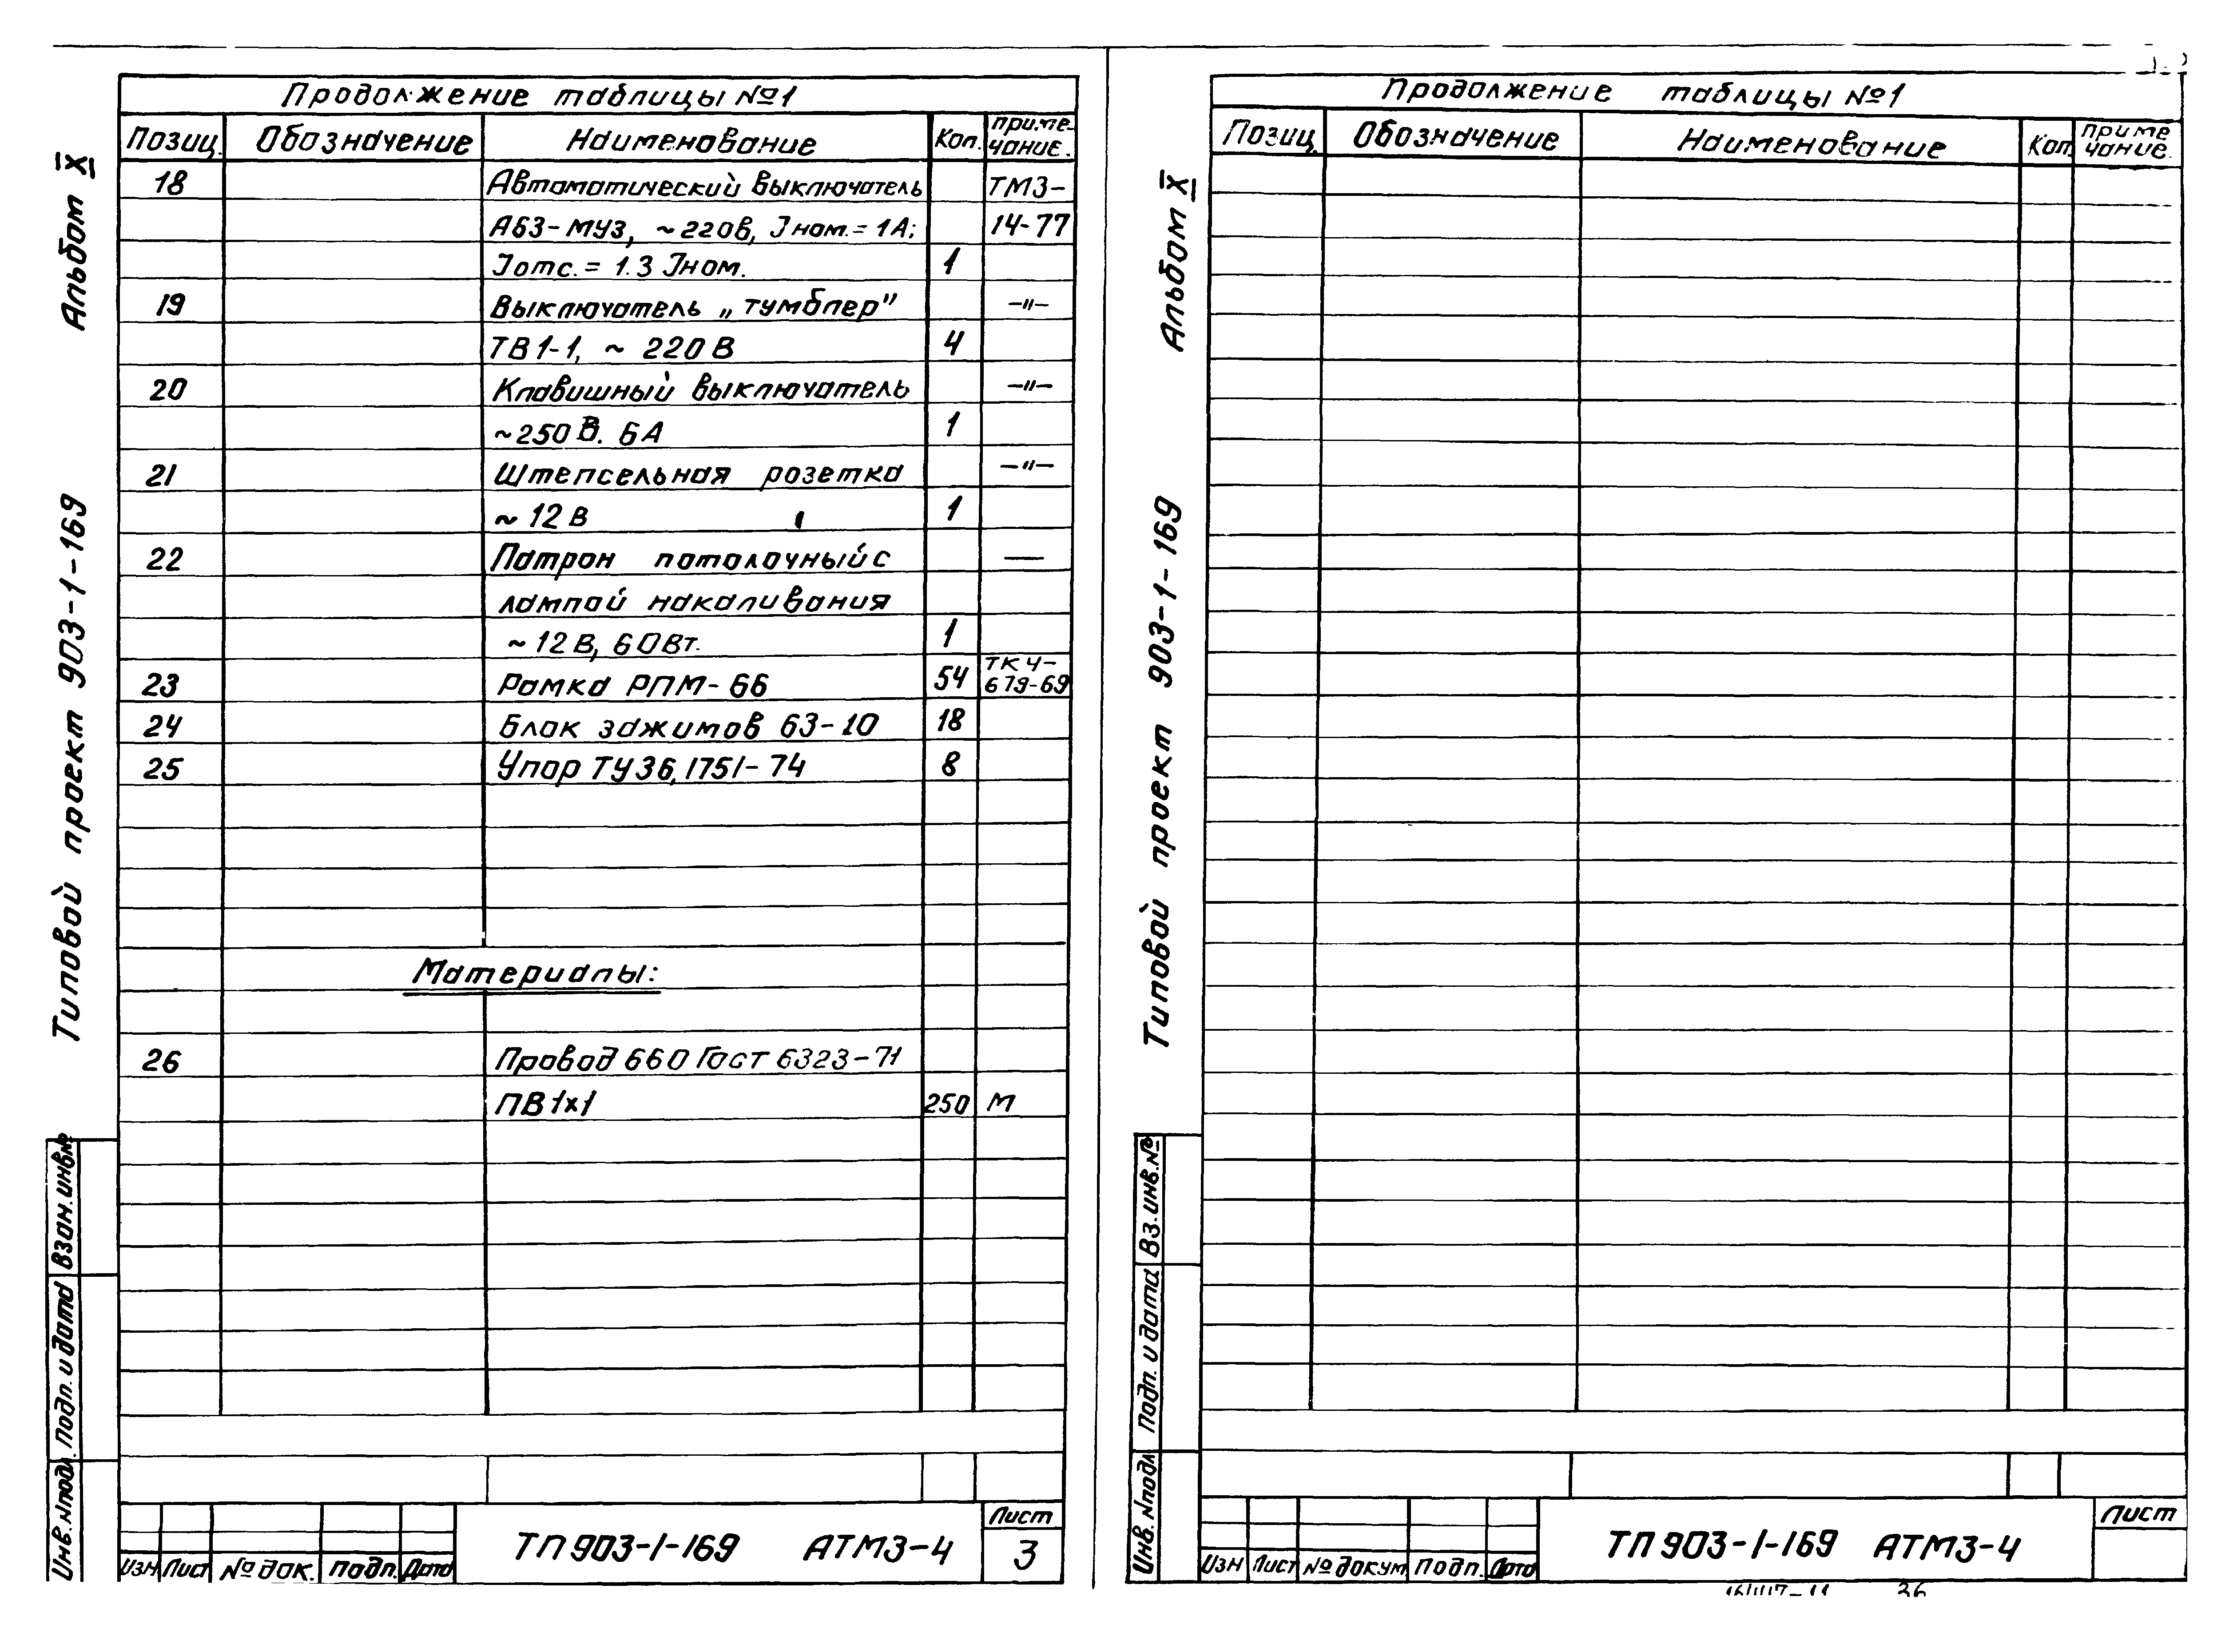 Продолжение таблицы №1
Позиц. Обозначение Наименование Кол. Приме-
чание.
18 Автоматический выключатель ТМ3-
А63-МУ3, ~220В, Iном.= 1А; 14-77
Iотс.= 1.3 Iном. 1
19 Выключатель „тумблер" —"—
ТВ1-1, ~ 220В 4
20 Клавишный выключатель —"—
~250В. 6А 1
21 Штепсельная розетка —"—
~ 12В 1
22 Патрон потолочный с —
лампой накаливания
~ 12В, 60Вт. 1
23 Рамка РПМ-66 54 ТК4-
679-69
24 Блок зажимов БЗ-10 18
25 Упор ТУ36,1751-74 8
Материалы:
26 Провод 660 Гост 6323-71
ПВ 1х1 250 м
Альбом X
Типовой проект 903-1-169
Взам. инв.№
Подп. и дата
Инв. № подл.
Изн Лист № док. Подп. Дата
ТП 903-1-169 АТМ3-4
Лист
3
Продолжение таблицы №1
Позиц. Обозначение Наименование Кол. Приме
чание.
Альбом X
Типовой проект 903-1-169
Вз. инв. №
Подп. и дата
Инв. № подл
Изн Лист № докум Подп. Дата
ТП 903-1-169 АТМ3-4
Лист
36